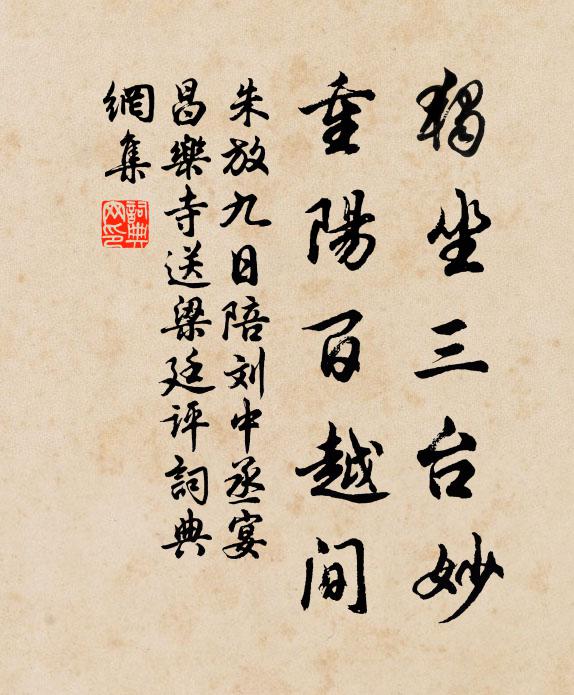 獨坐三台妙
重陽百越間
朱放九日陪刘中丞宴
昌樂寺送梁廷评詞典
網集
詞典
网印